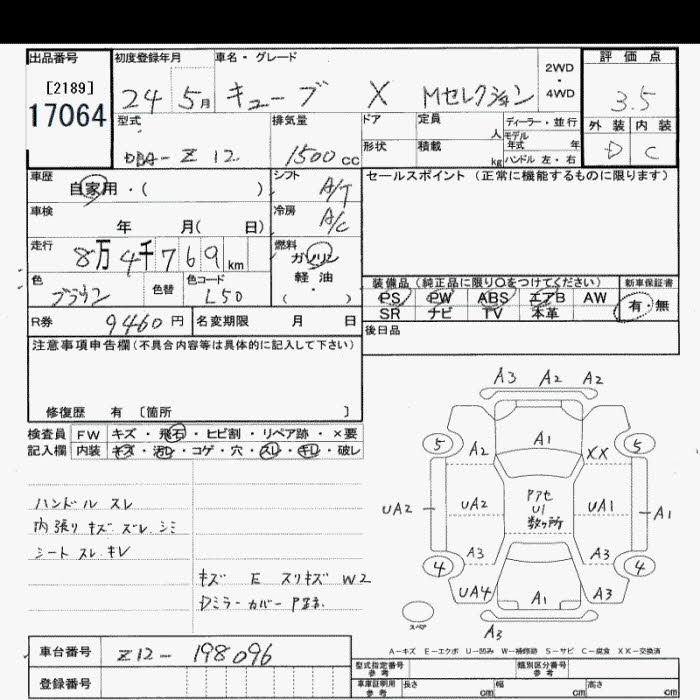 出品番号 初度登録年月 車名・グレード 2WD・4WD 評価点
[2189]
17064
24 5月 キューブ X Mセレクション 3.5
型式 排気量 ドア 定員 人 ディーラー・並行 外装 内装
DBA-Z12 1500cc 形状 積載 kg モデル年式 年 D C
ハンドル 左・右
車歴 シフト セールスポイント (正常に機能するものに限ります)
自家用・( ) A/T
車検 冷房
年 月( 日) A/C
走行 燃料
8万4千769km ガソリン
軽油
( )
色 色替 色コード 装備品 (純正品に限り○をつけてください) 新車保証書
ブラウン L50 PS PW ABS エアB AW 有・無
SR ナビ TV 本革
R券 9460円 名変期限 月 日 後日品
注意事項申告欄(不具合内容等は具体的に記入して下さい)
修復歴 有 [箇所 ]
検査員 FW キズ・飛石・ヒビ割・リペア跡・×要
記入欄 内装 キズ・汚レ・コゲ・穴・スレ・キレ・破レ
ハンドル スレ
内張り キズ ズレ シミ
シート スレ キレ
キズ E スリキズ W2
Dミラーカバー
A3 A2 A2
5 A2 A1 XX 5
UA2 UA2 アアセ U1 数ヶ所 UA1 A1
4 A3 A3 4
UA4 A1 A3
スペア A3
A-キズ E-エクボ U-凹み W-補修跡 S-サビ C-腐食 XX-交換済
車台番号 Z12-198096
登録番号
型式指定番号 参考 類別区分番号 参考
車庫証明用 参考 長さ cm 幅 cm 高さ cm